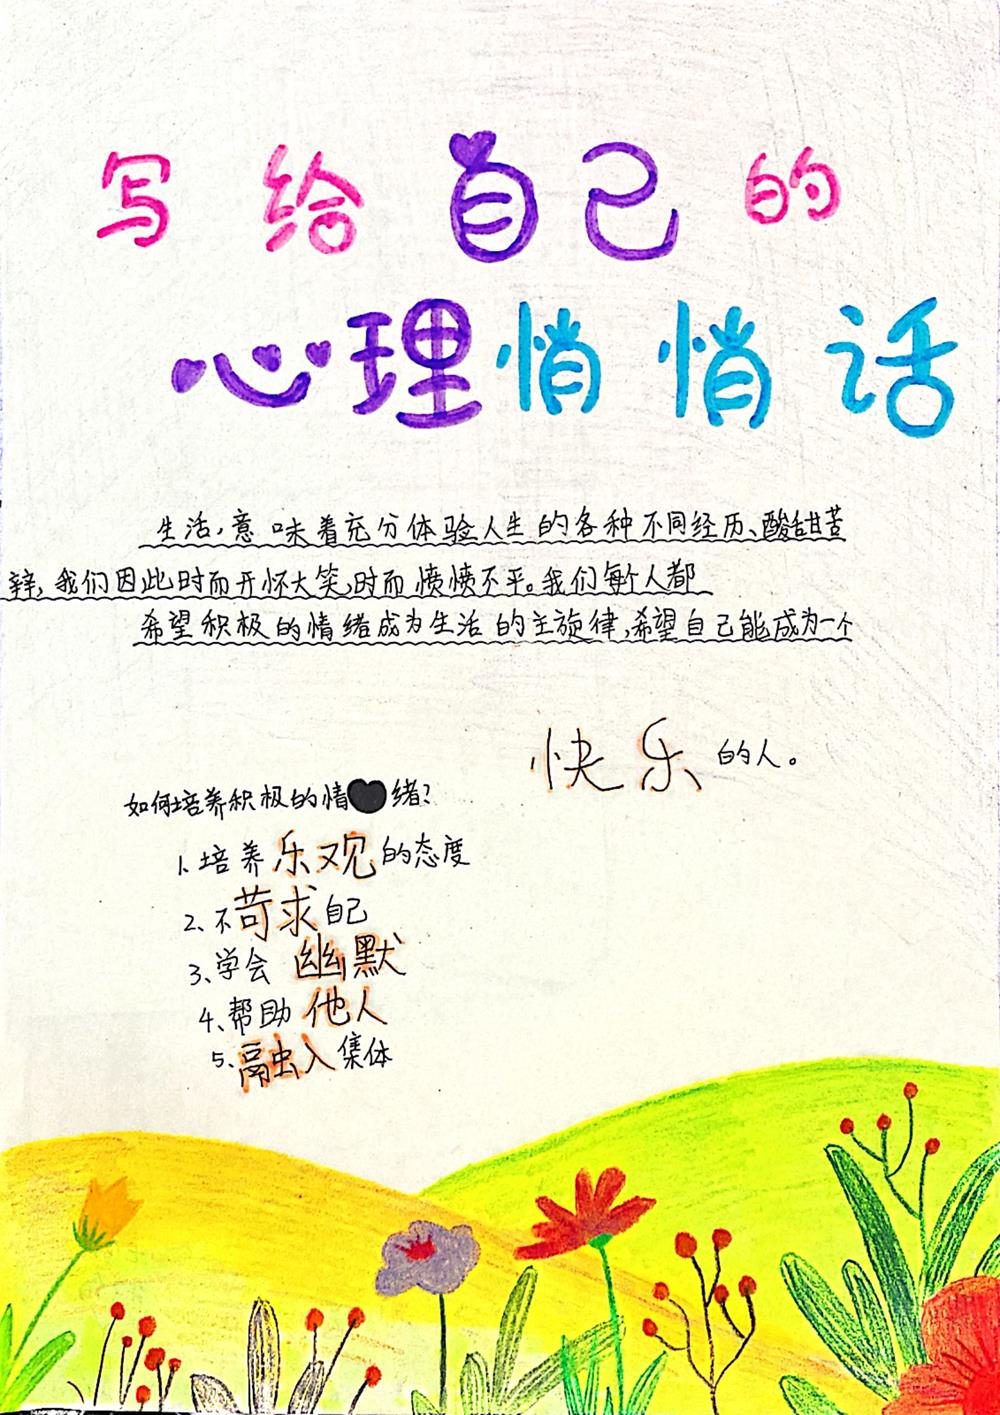 写给自己的
心理悄悄话
生活,意味着充分体验人生的各种不同经历、酸甜苦
辛,我们因此时而开怀大笑,时而愤愤不平。我们每个人都
希望积极的情绪成为生活的主旋律,希望自己能成为一个
快乐的人。
如何培养积极的情绪?
1、培养乐观的态度
2、不苛求自己
3、学会幽默
4、帮助他人
5、融入集体